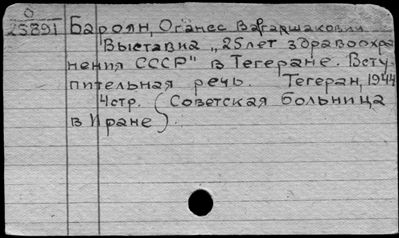 O
25891 Бароян, Оганес Вагаршакович
Выставка „25 лет здравоохра-
нения СССР" в Тегеране. Всту-
пительная речь. Тегеран, 1944
4стр. (Советская больница
в Иране).